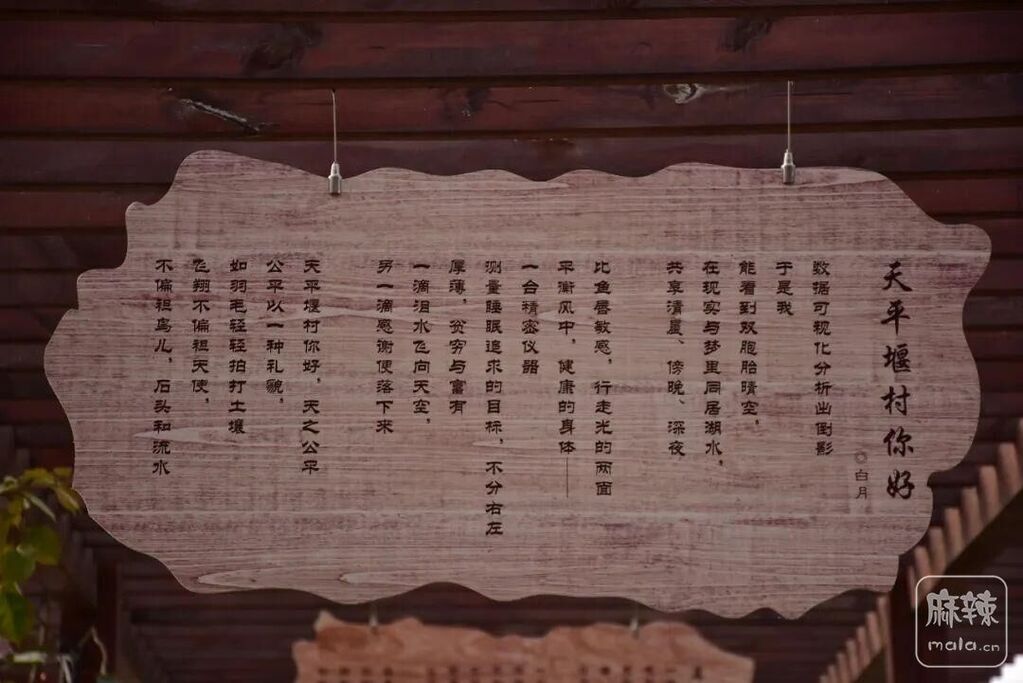 天平堰村你好
◎白月
数据可视化分析出倒影
于是我
能看到双胞胎晴空，
在现实与梦里同居湖水，
共享清晨、傍晚、深夜
比鱼唇敏感，行走光的两面
平衡风中，健康的身体——
一台精密仪器
测量睡眠追求的目标，不分右左
厚薄，贫穷与富有
一滴泪水飞向天空，
另一滴感谢便落下来
天平堰村你好，天之公平
公平以一种礼貌，
如羽毛轻轻拍打土壤
飞翔不偏袒天使，
不偏袒鸟儿，石头和流水
麻辣
mala.cn